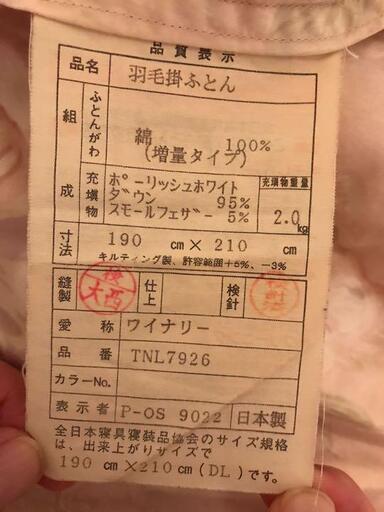 品質表示
品名 羽毛掛ふとん
組成 ふとんがわ 綿 100%
(増量タイプ)
充填物 ポーリッシュホワイト
ダウン 95%
スモールフェザー 5%
充填物重量 2.0kg
寸法 190 cm × 210 cm
キルティング製、許容範囲+5%、-3%
縫製 検 大西 仕上 検針
愛称 ワイナリー
品番 TNL7926
カラーNo.
表示者 P-OS 9022 日本製
全日本寝具寝装品協会のサイズ規格
は、出来上がりサイズで
190 cm×210cm(DL)です。